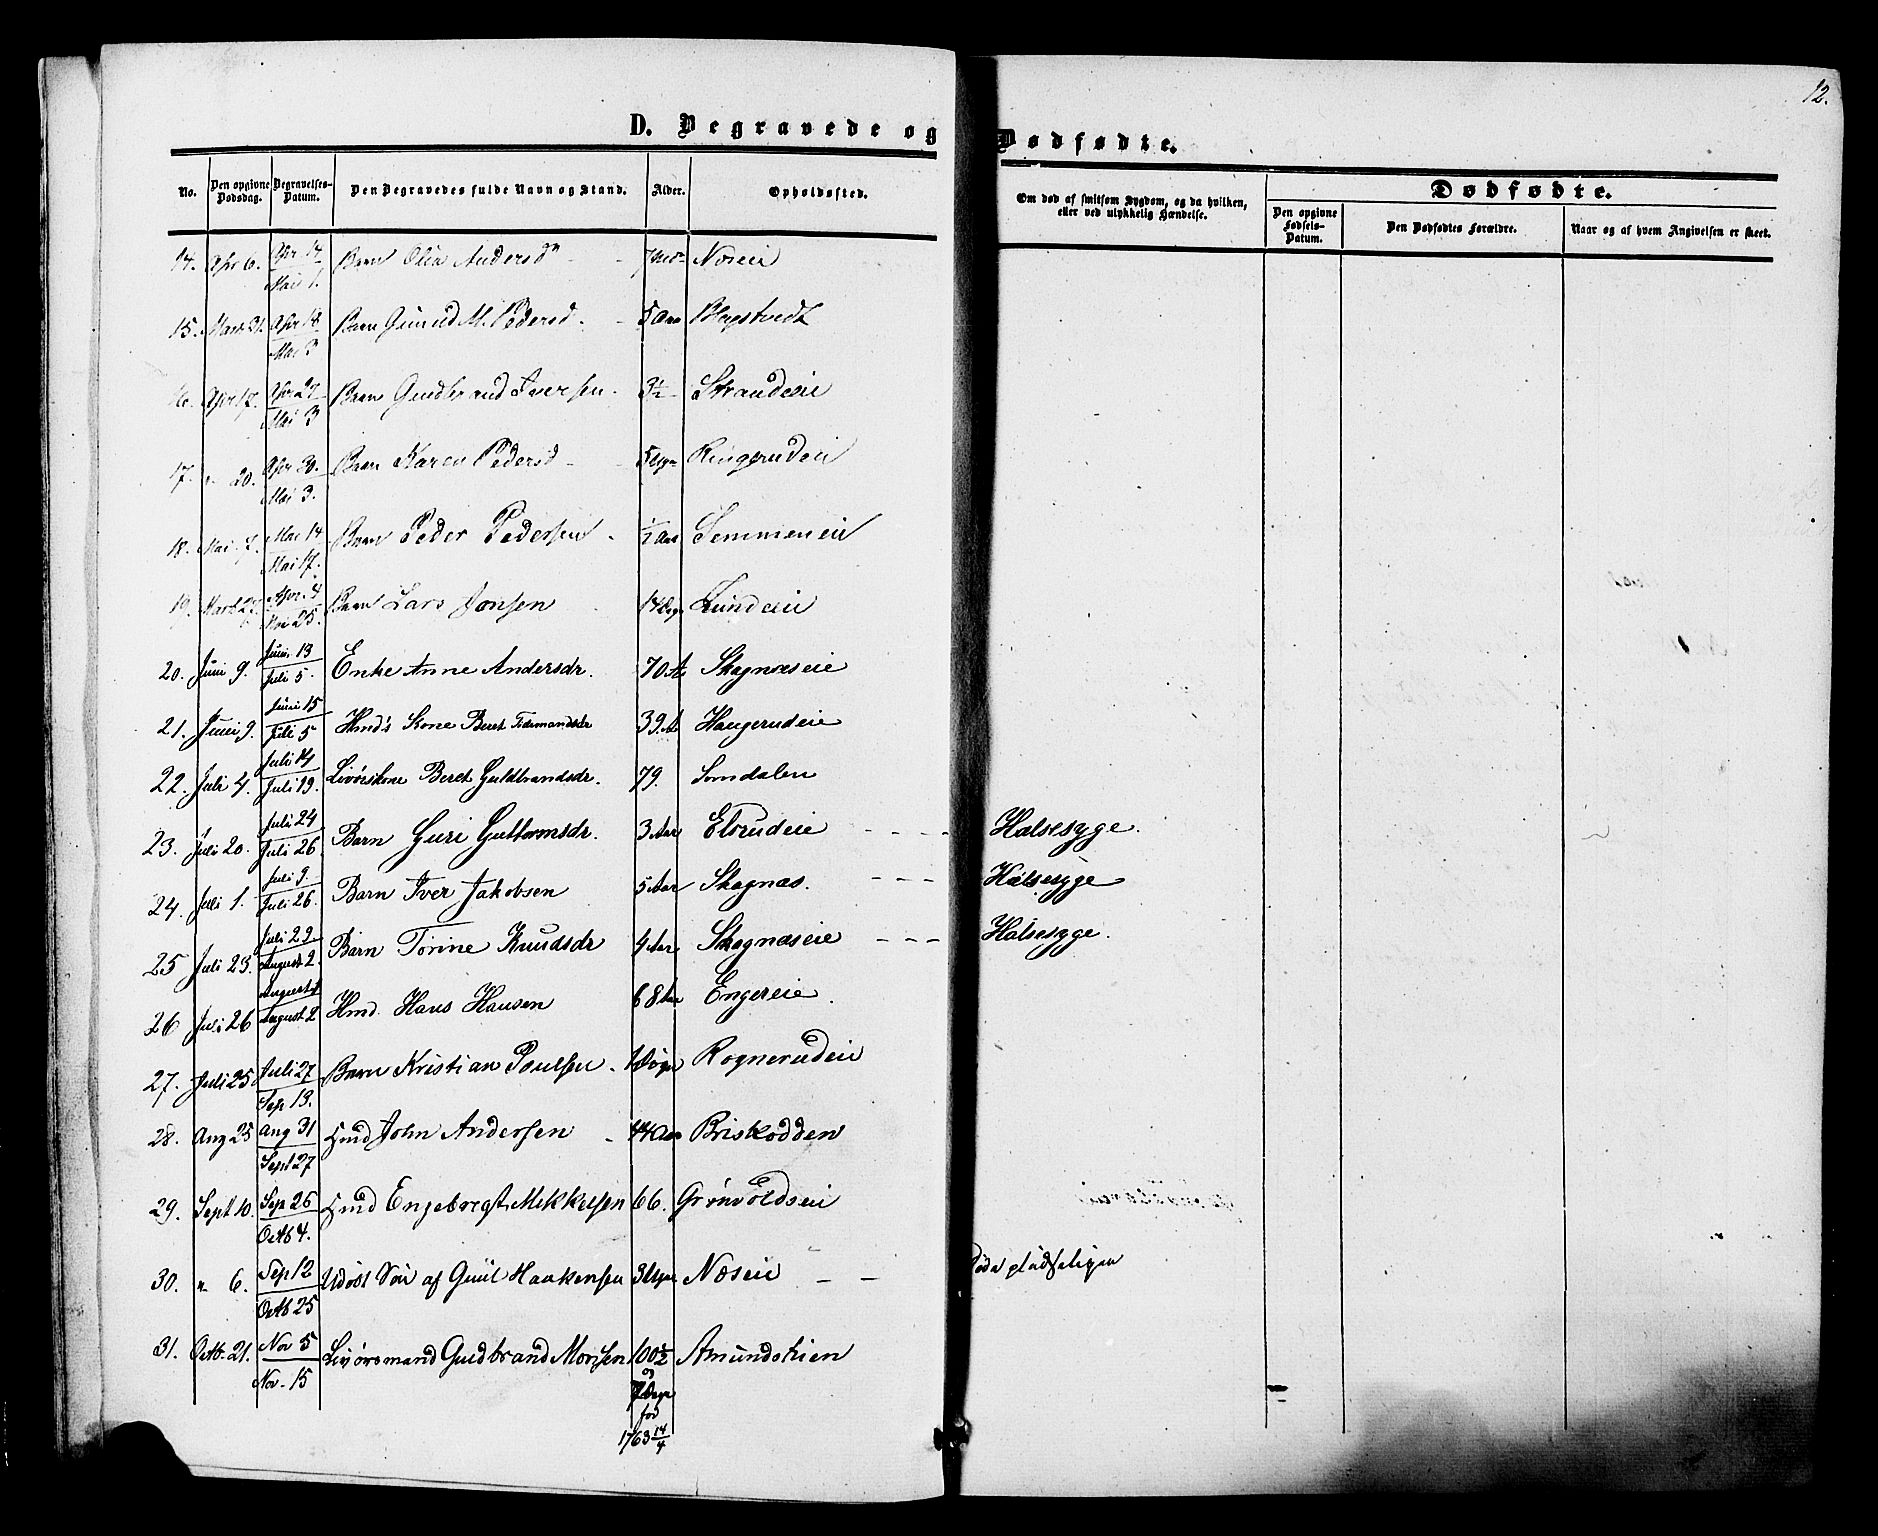 12.
D. Begravede og Dødfødte.
No. Den opgivne Dødsdag. Begravelses-Datum. Den Begravedes fulde Navn og Stand. Alder. Opholdssted. Om død af smitsom Sygdom, og da hvilken, eller ved ulykkelig Hændelse.
Dødfødte.
Den opgivne Fødsels-Datum. Den Dødfødtes Forældre. Naar og af hvem Angivelsen er skeet.
14. Apr 6. Apr 14 Mai 1. Barn Olia Andersdr Næseie
15. Marts 31. Apr 18 Mai 3 Barn Gunild M. Pedersd. 5 Aar
16. Apr 17. Apr 27 Mai 3 Barn Gudbrand Iversen. 3½ Strandeie
17. " 20. Apr 30. Mai 3. Barn Karen Pedersd 5 Ugr Ringerudeie
18. Mai 7. Mai 14 Mai 17. Barn Peder Pedersen ½ Aar Semmeneie
19. Marts 27. Apr. 4 Mai 25. Barn Lars Jonsen 14 Dgr Lundeie
20. Juni 9. Juni 13 Juli 5. Enke Anne Andersdr. 70 A Skagnæseie
21. Juni 9. Juni 15 Juli 5 Hmd's Kone Beret Tidemandsdr 39. A Haugerudeie
22. Juli 4. Juli 14 Juli 19. Livørskone Beret Guldbrandsdr. 79. Somdalen
23. Juli 20. Juli 24 Juli 26. Barn Guri Guttormsdr. 3 Aar Elsrudeie - - - Halsesyge.
24. Juli 1. Juli 9. Juli 26. Barn Iver Jakobsen 5 Aar Skagnæs. - - - Halsesyge
25 Juli 23. Juli 29 August 2. Barn Torine Knudsdr 4 Aar Skagnæseie - - - Halsesyge.
26 Juli 26 August 1 August 2 Hmd. Hans Hansen 68 Aar Engereie.
27. Juli 25 Juli 27 Sep 13. Barn Kristian Poulsen. 1 Døgn Rognerudeie
28. Aug 25 Aug 31 Sept 27 Hmd John Andersen 44 Aar Briskodden
29. Sept 10. Sep 26 Octb 4. Hmd Engebregt Mikkelsen 66. Grønvoldseie
30. " 6. Sep 12 Octb 25 Udøbt Søn af Gunil Haakensen 3 Uger Næseie - - Døde pludseligen
31. Octb. 21. Nov 5 Nov. 15 Livørsmand Gudbrand Monsen 100½ og 7 Dage fød 1763 14/4 Amundshien